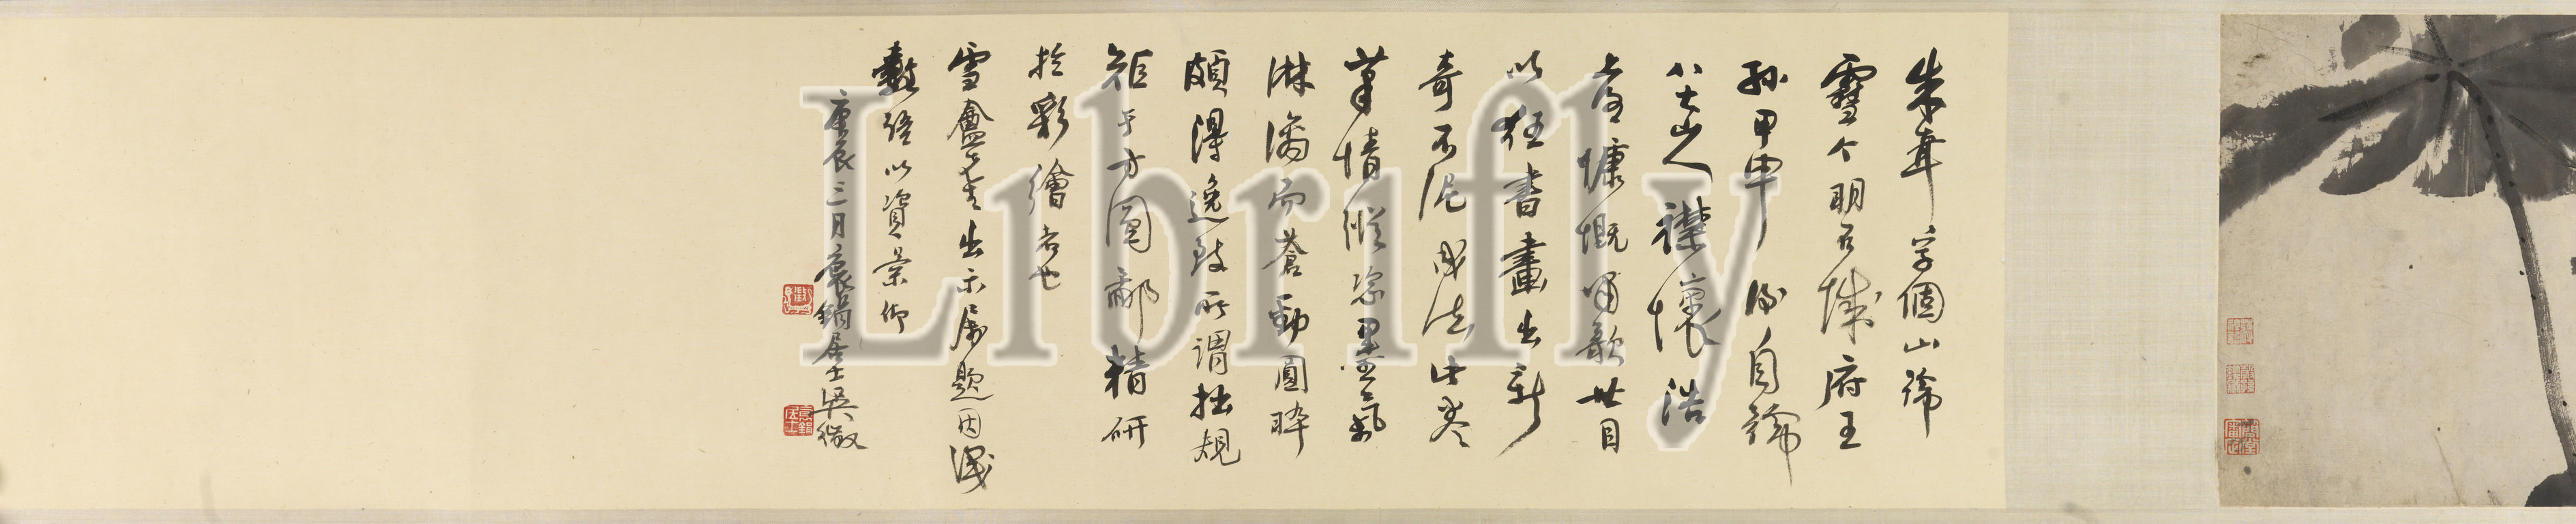 朱耷字個山號
雪个明石城府王
孫甲申後自號
八大山人襟懷浩
落慷慨嘯歌世目
以狂書畫出新
奇不泥成法此卷
筆情縱恣墨氣
淋漓而蒼勁圓晬
頗得逸致所謂拙規
矩于方圓鄙精研
於彩繪者也
雪盦先生出示屬題因識
數語以資景仰
庚辰三月袌鋗居士吳徵
Librifly